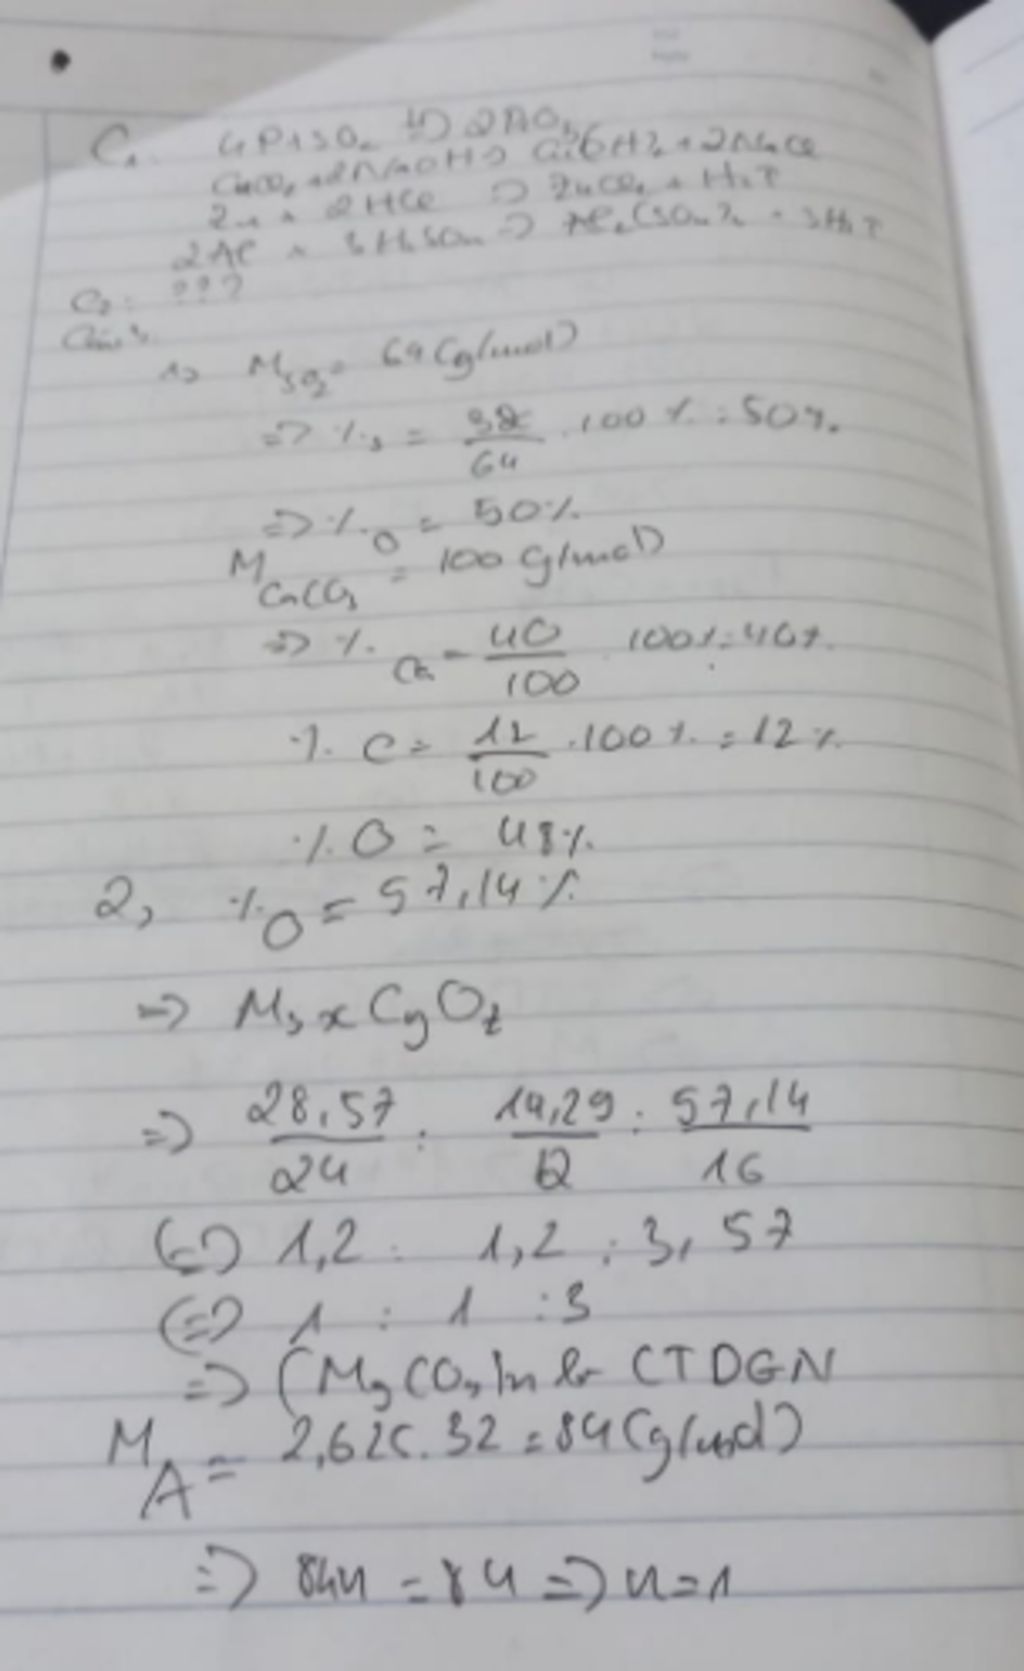 C1. 4P + 5O2 2P2O5
CuCl2 + 2NaOH => Cu(OH)2 + 2NaCl
Zn + 2HCl => ZnCl2 + H2↑
2Al + 3H2SO4 => Al2(SO4)3 + 3H2↑
C2: ???
Câu 3.
1, MSO2 = 64 (g/mol)
=> %S = 32/64 . 100% = 50%.
=> %O = 50%
MCaCO3 = 100 (g/mol)
=> %Ca = 40/100 . 100% = 40%
% C = 12/100 . 100% = 12%
% O = 48%
2, %O = 57,14%
=> MgxCyOz
=> 28,57/24 : 14,29/12 : 57,14/16
<=> 1,2 : 1,2 : 3,57
<=> 1 : 1 : 3
=> (MgCO3)n là CTDGN
MA = 2,625.32 = 84 (g/mol)
=> 84n = 84 => n = 1